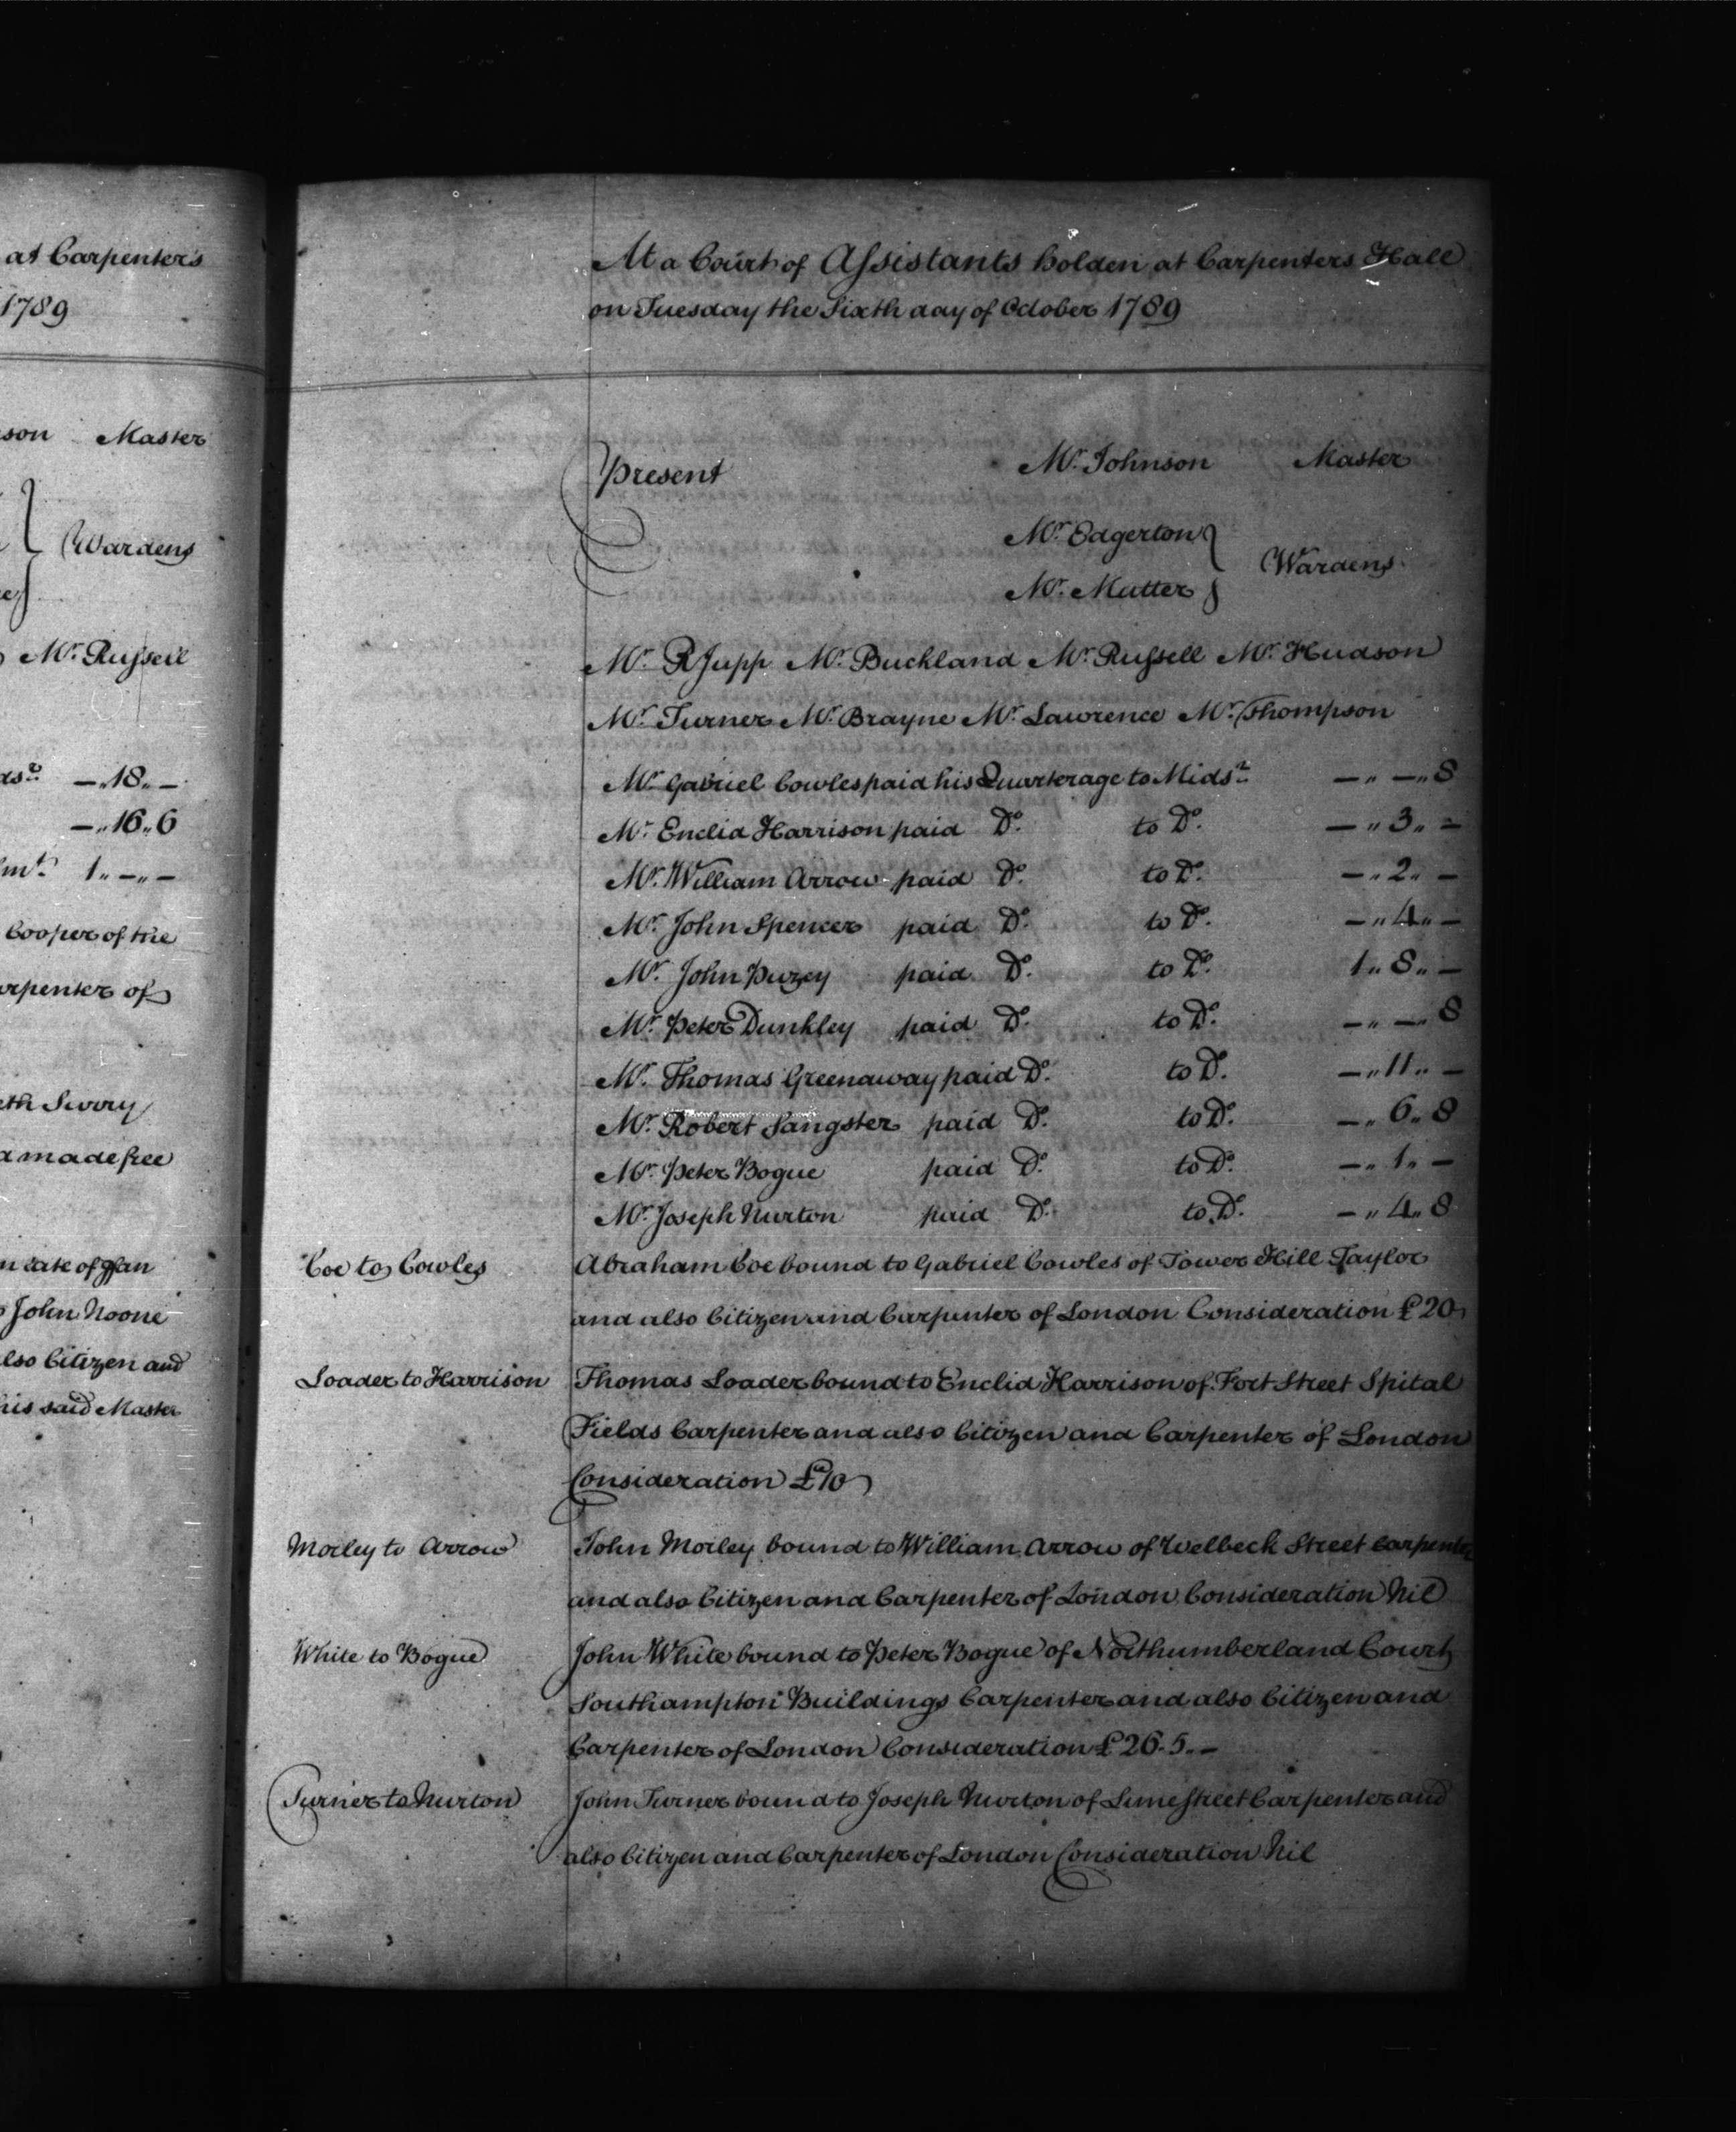 at Carpenters
1789
son Master
Wardens
Mr. Russell
ds.r —„18„—
—„16„6
mt. 1„—„—
Cooper of the
arpenter of
eth Ivory
d made free
John Noone
also Citizen and
his said Master
At a Court of Assistants holden at Carpenters Hall
on Tuesday the Sixth day of October 1789
Present Mr. Johnson Master
Mr. Edgerton
Wardens
Mr. Mutter
Mr. R Jupp Mr. Buckland Mr. Russell Mr. Hudson
Mr. Turner Mr. Brayne Mr. Lawrence Mr. Thompson
Mr. Gabriel Cowles paid his Quarterage to Mids.r —„—„8
Mr. Enclid Harrison paid Do. to Do. —„3„—
Mr. William Arrow paid Do. to Do. —„2„—
Mr. John Spencer paid Do. to Do. —„4„—
Mr. John Puzey paid Do. to Do. 1„8„—
Mr. Peter Dunkley paid Do. to Do. —„—„8
Mr. Thomas Greenaway paid Do. to Do. —„11„—
Mr. Robert Sangster paid Do. to Do. —„6„8
Mr. Peter Bogue paid Do. to Do. —„1„—
Mr. Joseph Nurton paid Do. to Do. —„4„8
Coe to Cowles Abraham Coe bound to Gabriel Cowles of Tower Hill Taylor
and also Citizen and Carpenter of London Consideration £20
Loader to Harrison Thomas Loader bound to Enclid Harrison of Fort Street Spital
Fields Carpenter and also Citizen and Carpenter of London
Consideration £10
Morley to Arrow John Morley bound to William Arrow of Welbeck Street Carpenter
and also Citizen and Carpenter of London Consideration Nil
White to Bogue John White bound to Peter Bogue of Northumberland Court
Southampton Buildings Carpenter and also Citizen and
Carpenter of London Consideration £26.5.—
Turner to Nurton John Turner bound to Joseph Nurton of Lime Street Carpenter and
also Citizen and Carpenter of London Consideration Nil